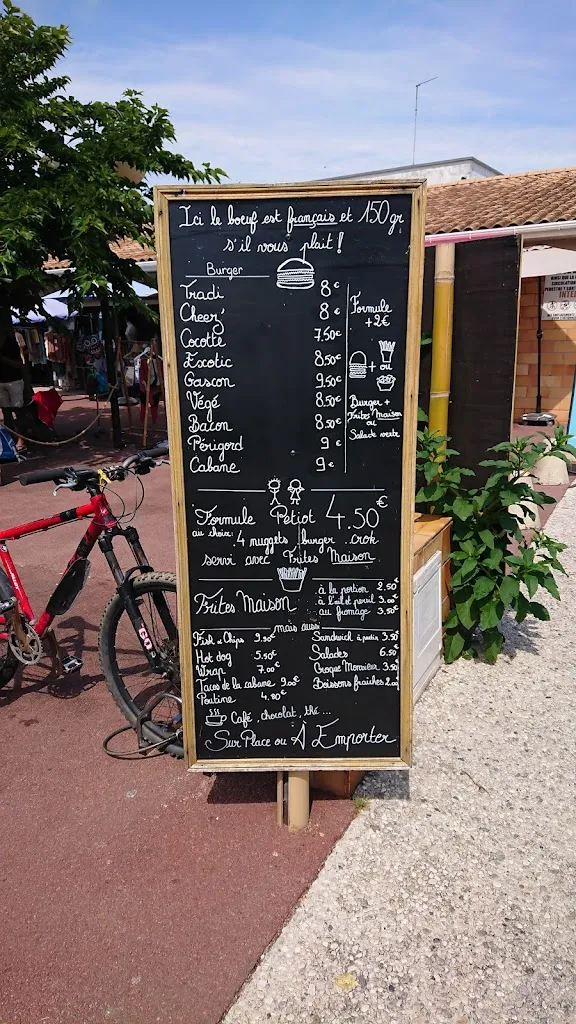 Ici le bœuf est français et 150gr
s'il vous plait !
Burger
Tradi 8€
Cheez' 8€
Cocotte 7,50€
Exotic 8,50€
Gascon 9,50€
Végé 8,50€
Bacon 8,50€
Périgord 9€
Cabane 9€
Formule
+2€
+ ou
Burger +
Frites Maison
ou
Salade verte
Formule Petiot 4.50€
au choix: 4 nuggets, burger, crok
servi avec Frites Maison
Frites Maison
à la portion 2.50€
à l'ail et persil 3.00€
au fromage 3.50€
mais aussi
Fish n' Chips 9.90€
Hot dog 5.50€
Wrap 7.00€
Tacos de la cabane 9.00€
Poutine 4.80€
Sandwich à partir 3.50€
Salades 6.90€
Croque Monsieur 3.50
Boissons fraîches 2.00
Café, chocolat, thé ...
Sur Place ou À Emporter
GO